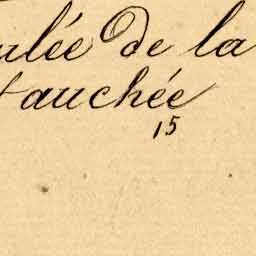 ulée de la
tauchée
15